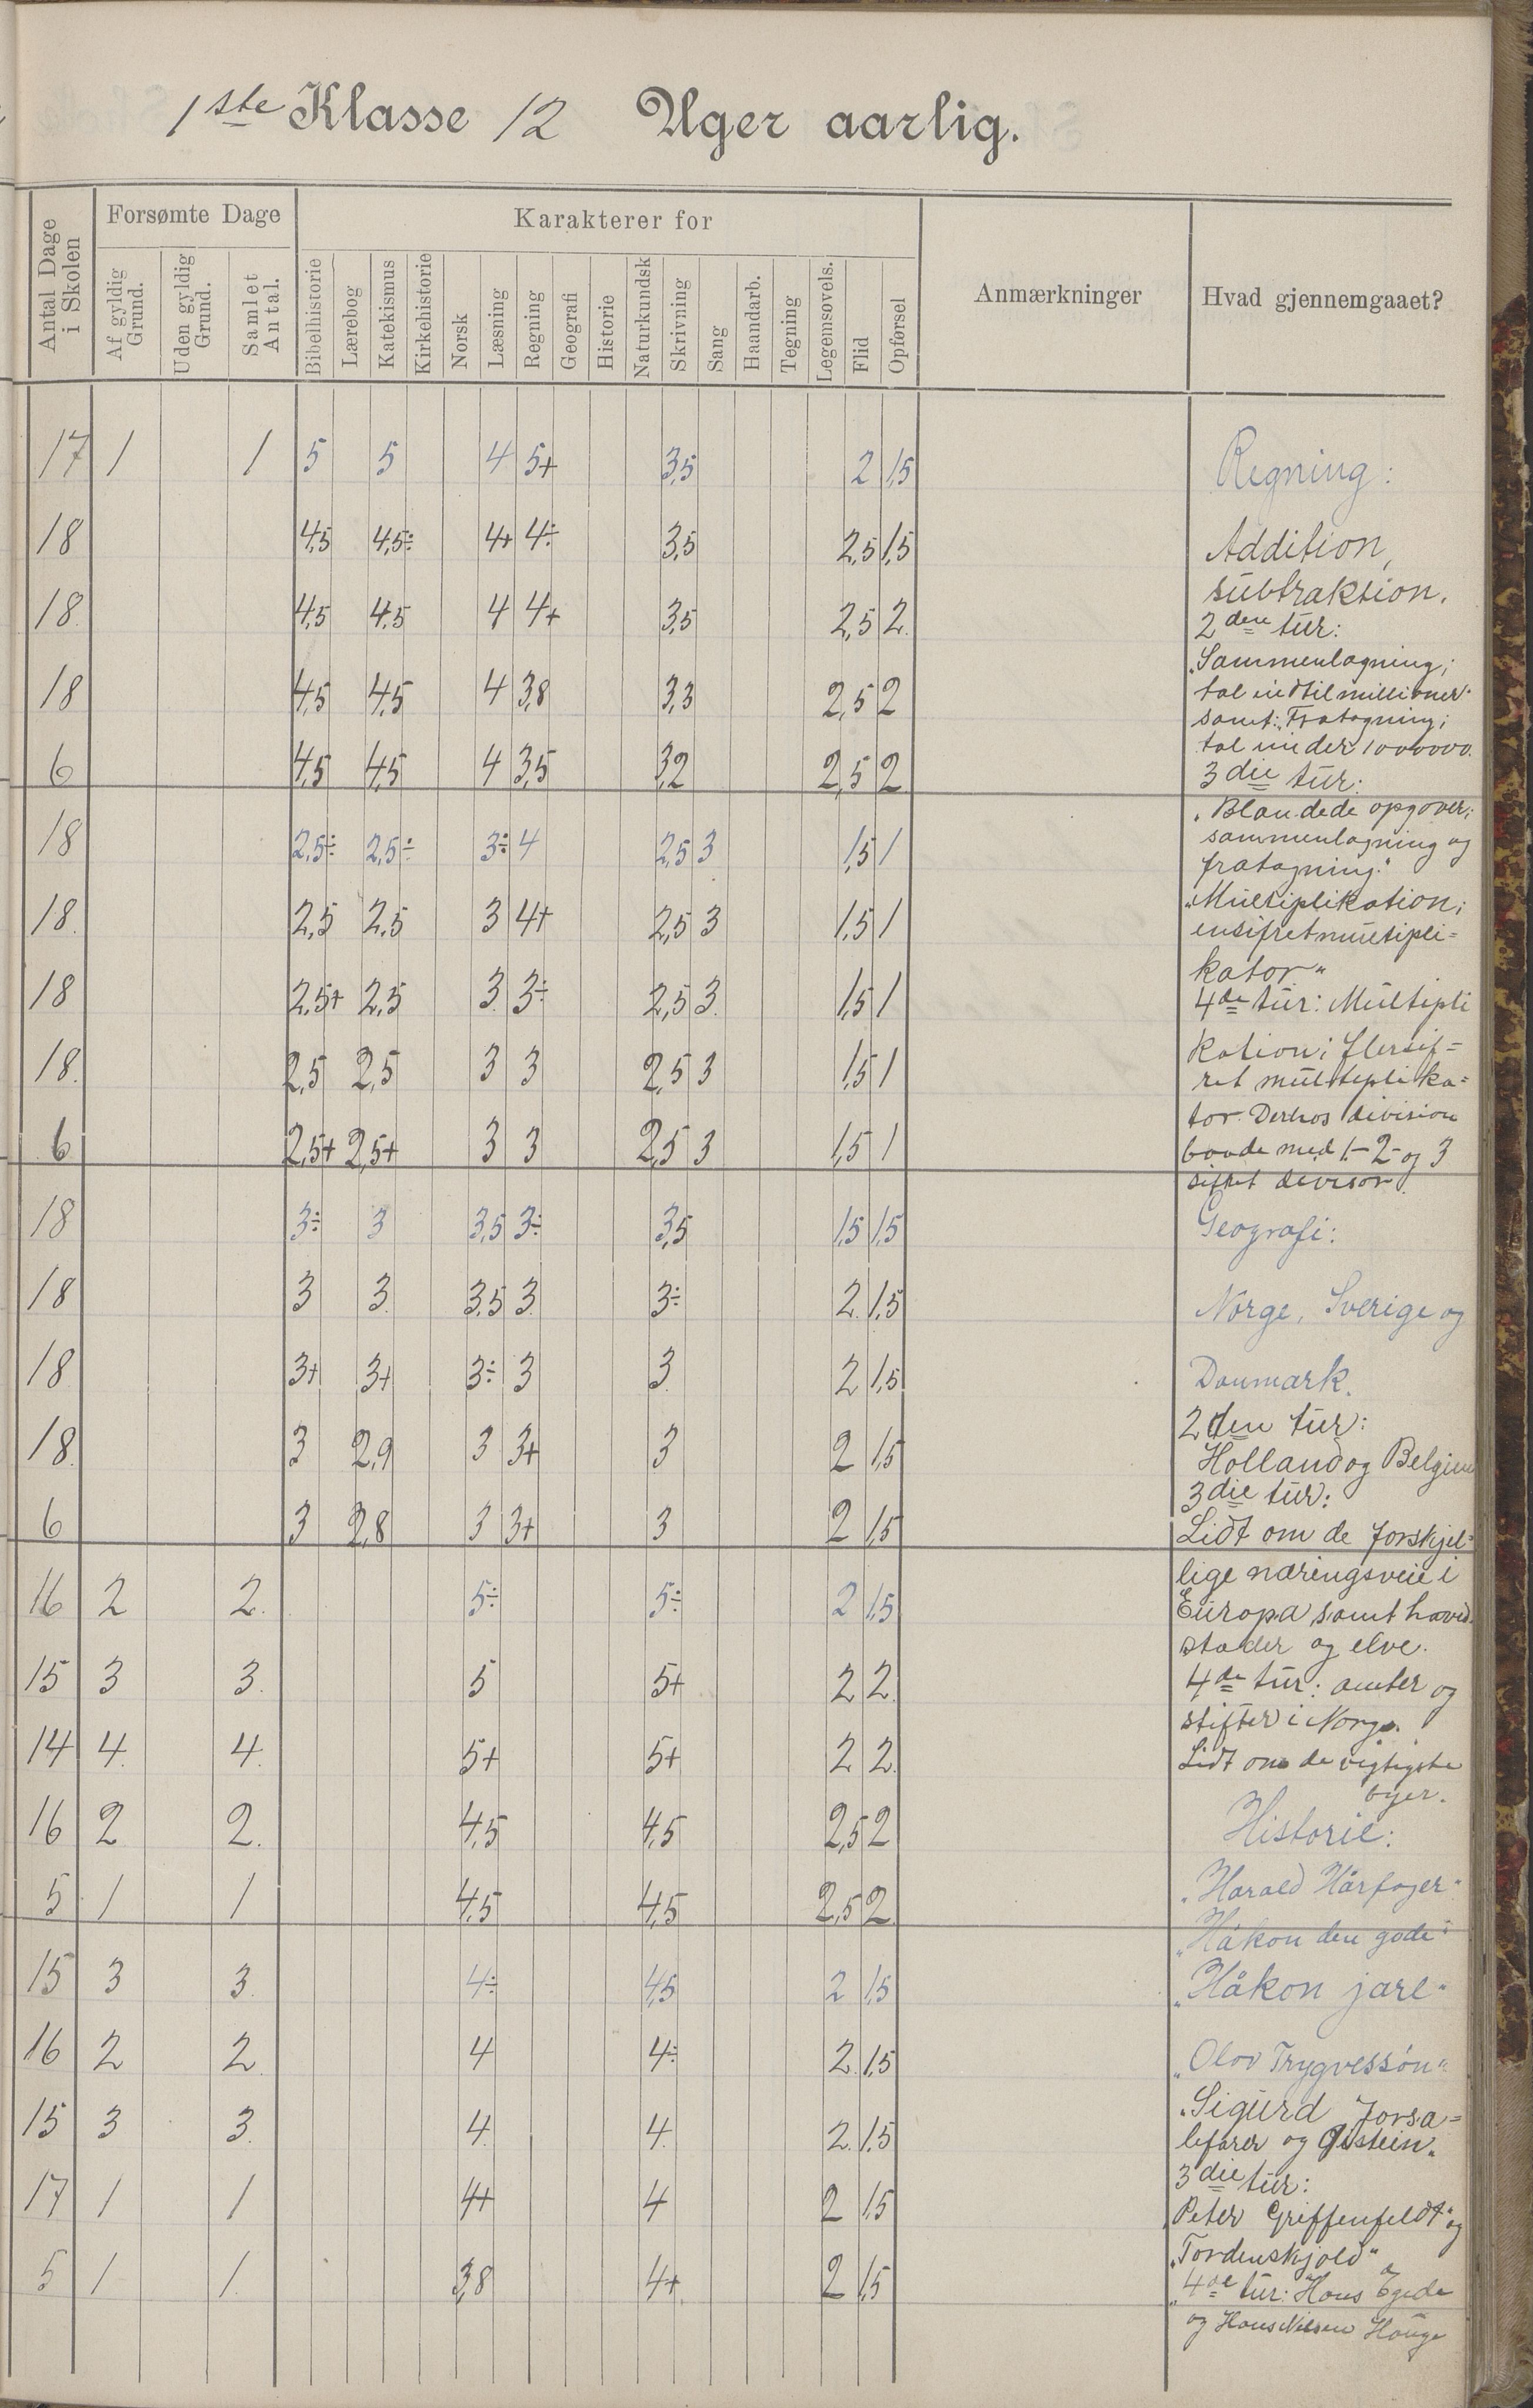 1ste Klasse 12 Uger aarlig.
Antal Dage i Skolen
Forsømte Dage
Karakterer for
Af gyldig Grund.
Uden gyldig Grund.
Samlet Antal.
Bibelhistorie
Lærebog
Katekismus
Kirkehistorie
Norsk
Læsning
Regning
Geografi
Historie
Naturkundsk
Skrivning
Sang
Haandarb.
Tegning
Legemsøvels.
Flid
Opførsel
Anmærkninger
Hvad gjennemgaaet?
17 1 1 5 5 4 5+ 3,5 2 1,5
18 4,5 4,5÷ 4+ 4÷ 3,5 2,5 1,5
18 4,5 4,5 4 4+ 3,5 2,5 2
18 4,5 4,5 4 3,8 3,3 2,5 2
6 4,5 4,5 4 3,5 3,2 2,5 2
18 2,5÷ 2,5÷ 3÷ 4 2,5 3 1,5 1
18 2,5 2,5 3 4+ 2,5 3 1,5 1
18 2,5+ 2,5 3 3÷ 2,5 3 1,5 1
18 2,5 2,5 3 3 2,5 3 1,5 1
6 2,5+ 2,5+ 3 3 2,5 3 1,5 1
18 3÷ 3 3,5 3÷ 3,5 1,5 1,5
18 3 3 3,5 3 3÷ 2 1,5
18 3+ 3+ 3÷ 3 3 2 1,5
18 3 2,9 3 3+ 3 2 1,5
6 3 2,8 3 3+ 3 2 1,5
16 2 2 5÷ 5÷ 2 1,5
15 3 3 5 5+ 2 2
14 4 4 5+ 5+ 2 2
16 2 2 4,5 4,5 2,5 2
5 1 1 4,5 4,5 2,5 2
15 3 3 4÷ 4,5 2 1,5
16 2 2 4 4÷ 2 1,5
15 3 3 4 4 2 1,5
17 1 1 4+ 4 2 1,5
5 1 1 3,8 4+ 2 1,5
Regning:
Addition,
subtraktion.
2den tur:
"Sammenlagning;
tal indtil millioner"
samt: "Fratagning;
tal under 1000000.
3die tur:
"Blandede opgaver;
sammenlagning og
fratagning."
"Multiplikation;
ensifret multipli=
kator"
4de tur: Multipli
kation; flersif=
ret multiplika=
tor. Derhos division
baade med 1- 2- og 3
sifret divisor.
Geografi:
Norge, Sverige og
Danmark.
2den tur:
Holland og Belgien
3die tur:
Lidt om de forskjel=
lige næringsveie i
Europa samt hoved
stæder og elve.
4de tur: amter og
stifter i Norge.
Lidt om de vigtigste
byer.
Historie:
"Harald Hårfager"
"Håkon den gode"
"Håkon jarl"
"Olav Trygvessøn"
"Sigurd Jorsa=
lefarer og Øistein"
3die tur:
"Peter Griffenfeldt" og
"Tordenskjold"
"4de tur: Hans Egede
og Hans Nielsen Hauge